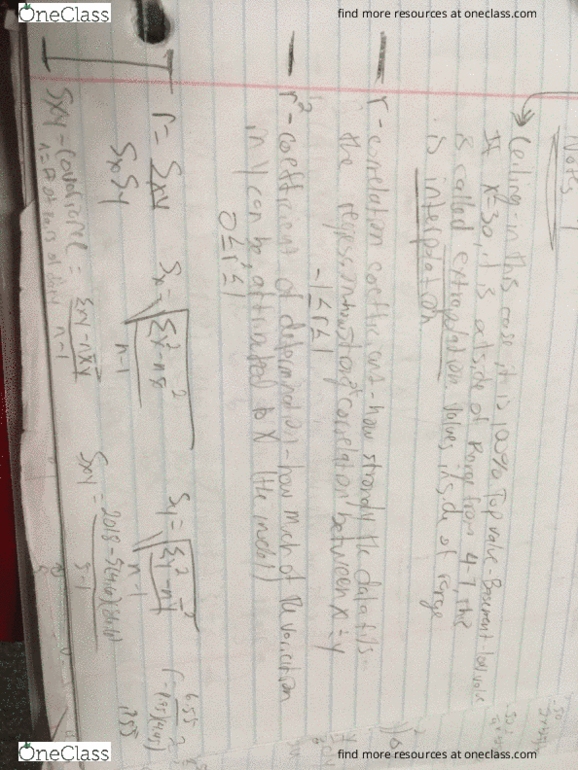 OneClass
find more resources at oneclass.com
Notes
Ceiling - in this case, it is 100% Top value - Basement - low value
If x = 30, it is outside of Range from 4-7, this
is called extrapolation values inside of range
is interpolation
r - correlation coefficient - how strongly the data fits
the regression how strong correlation between x = y
-1 ≤ r ≤ 1
r² - coefficient of determination - how much of the variation
in y can be attributed to x (the model)
0 ≤ r² ≤ 1
r = Sxy / SxSy
Sx = √(Σx² - nx̄² / n-1)
Sy = √(Σy² - nȳ² / n-1)
Sxy - Covariance = Σxy - nx̄ȳ / n-1
n = # of pairs of data
Sxy = 2018 - 5(4.6) / 5-1
r = 6.55
OneClass
find more resources at oneclass.com